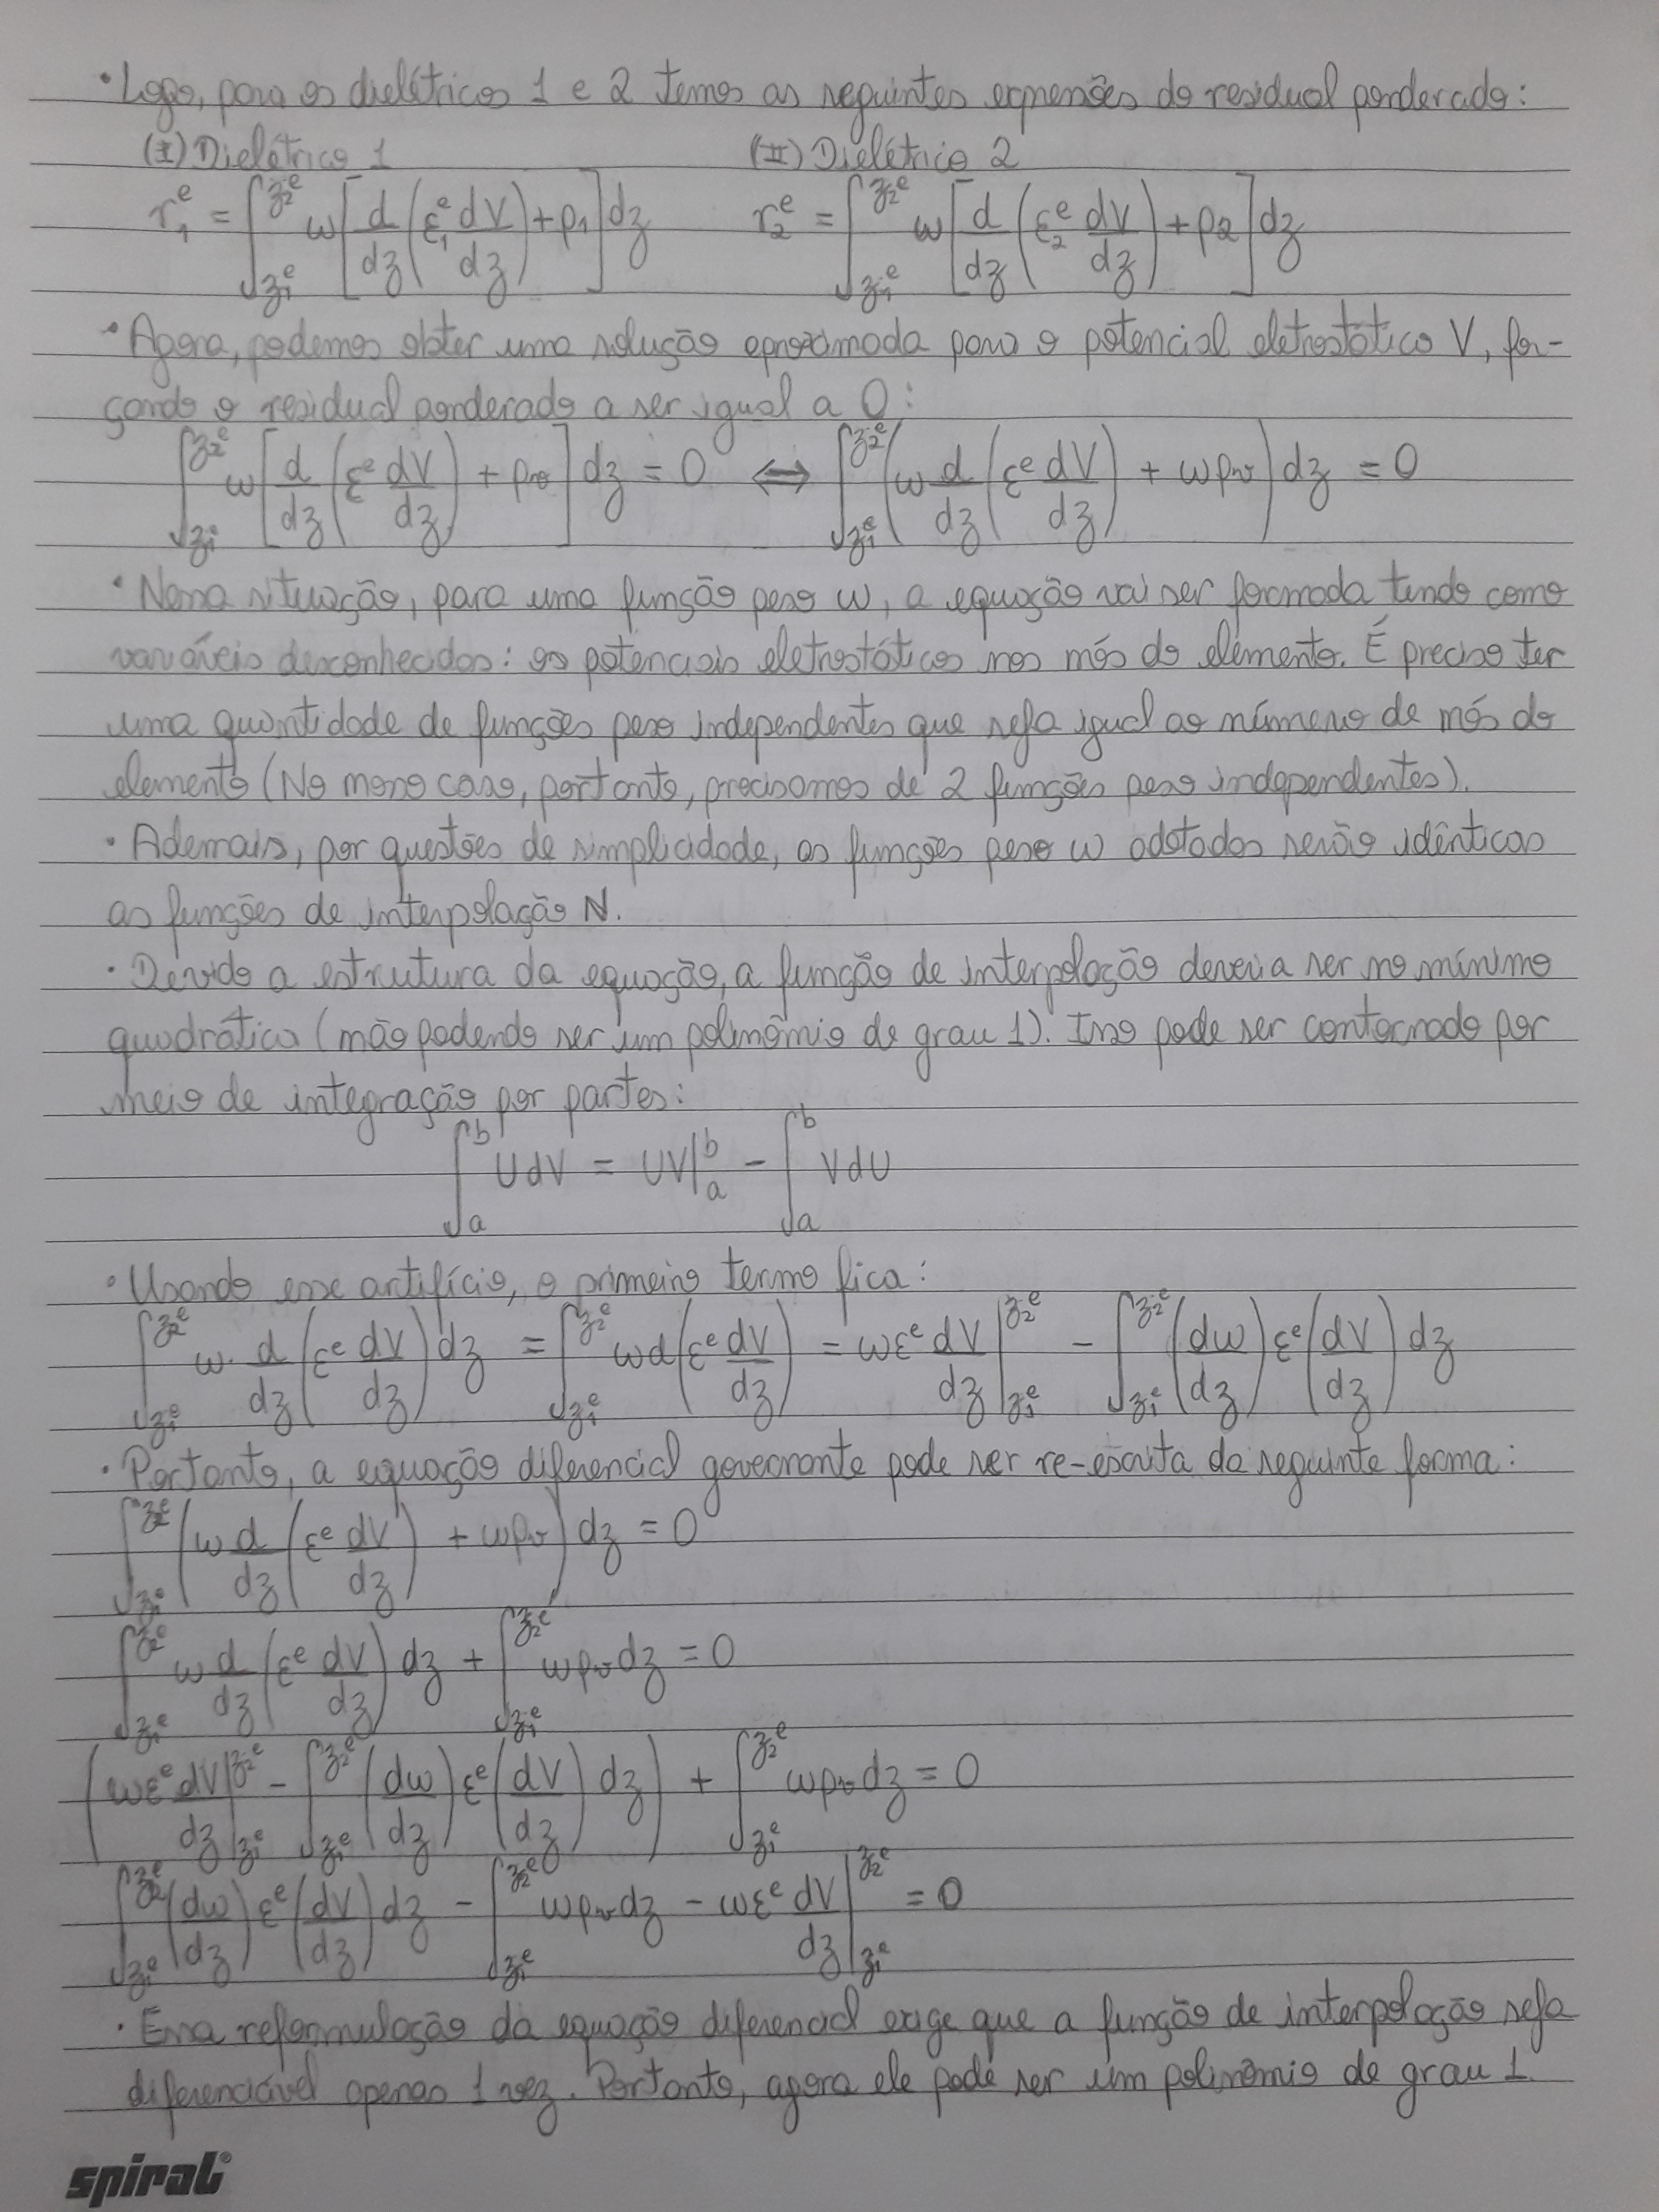 · Logo, para os dielétricos 1 e 2 temos as seguintes expressões do residual ponderado:
(I) Dielétrico 1 (II) Dielétrico 2
r₁ᵉ = ∫_{z₁ᵉ}^{z₂ᵉ} w[d/dz(ε₁ᵉ dV/dz) + ρ₁]dz r₂ᵉ = ∫_{z₁ᵉ}^{z₂ᵉ} w[d/dz(ε₂ᵉ dV/dz) + ρ₂]dz
· Agora, podemos obter uma solução aproximada para o potencial eletrostático V, for-
çando o residual ponderado a ser igual a 0:
∫_{z₁ᵉ}^{z₂ᵉ} w[d/dz(εᵉ dV/dz) + ρv]dz = 0 ⇔ ∫_{z₁ᵉ}^{z₂ᵉ} (w d/dz(εᵉ dV/dz) + wρv)dz = 0
· Nessa situação, para uma função peso w, a equação vai ser formada tendo como
variáveis desconhecidas: os potenciais eletrostáticos nos nós do elemento. É preciso ter
uma quantidade de funções peso independentes que seja igual ao número de nós do
elemento (No nosso caso, portanto, precisamos de 2 funções peso independentes).
· Ademais, por questões de simplicidade, as funções peso w adotadas serão idênticas
as funções de interpolação N.
· Devido a estrutura da equação, a função de interpolação deveria ser no mínimo
quadrática (não podendo ser um polinômio de grau 1). Isso pode ser contornado por
meio de integração por partes:
∫_a^b UdV = UV|_a^b - ∫_a^b VdU
· Usando esse artifício, o primeiro termo fica:
∫_{z₁ᵉ}^{z₂ᵉ} w·d/dz(εᵉ dV/dz)dz = ∫_{z₁ᵉ}^{z₂ᵉ} wd(εᵉ dV/dz) = wεᵉ dV/dz|_{z₁ᵉ}^{z₂ᵉ} - ∫_{z₁ᵉ}^{z₂ᵉ} (dw/dz)εᵉ(dV/dz)dz
· Portanto, a equação diferencial governante pode ser re-escrita da seguinte forma:
∫_{z₁ᵉ}^{z₂ᵉ} (w d/dz(εᵉ dV/dz) + wρv)dz = 0
∫_{z₁ᵉ}^{z₂ᵉ} w d/dz(εᵉ dV/dz)dz + ∫_{z₁ᵉ}^{z₂ᵉ} wρvdz = 0
(wεᵉ dV/dz|_{z₁ᵉ}^{z₂ᵉ} - ∫_{z₁ᵉ}^{z₂ᵉ} (dw/dz)εᵉ(dV/dz)dz) + ∫_{z₁ᵉ}^{z₂ᵉ} wρvdz = 0
∫_{z₁ᵉ}^{z₂ᵉ} (dw/dz)εᵉ(dV/dz)dz - ∫_{z₁ᵉ}^{z₂ᵉ} wρvdz - wεᵉ dV/dz|_{z₁ᵉ}^{z₂ᵉ} = 0
· Essa reformulação da equação diferencial exige que a função de interpolação seja
diferenciável apenas 1 vez. Portanto, agora ele pode ser um polinômio de grau 1.
spiral®